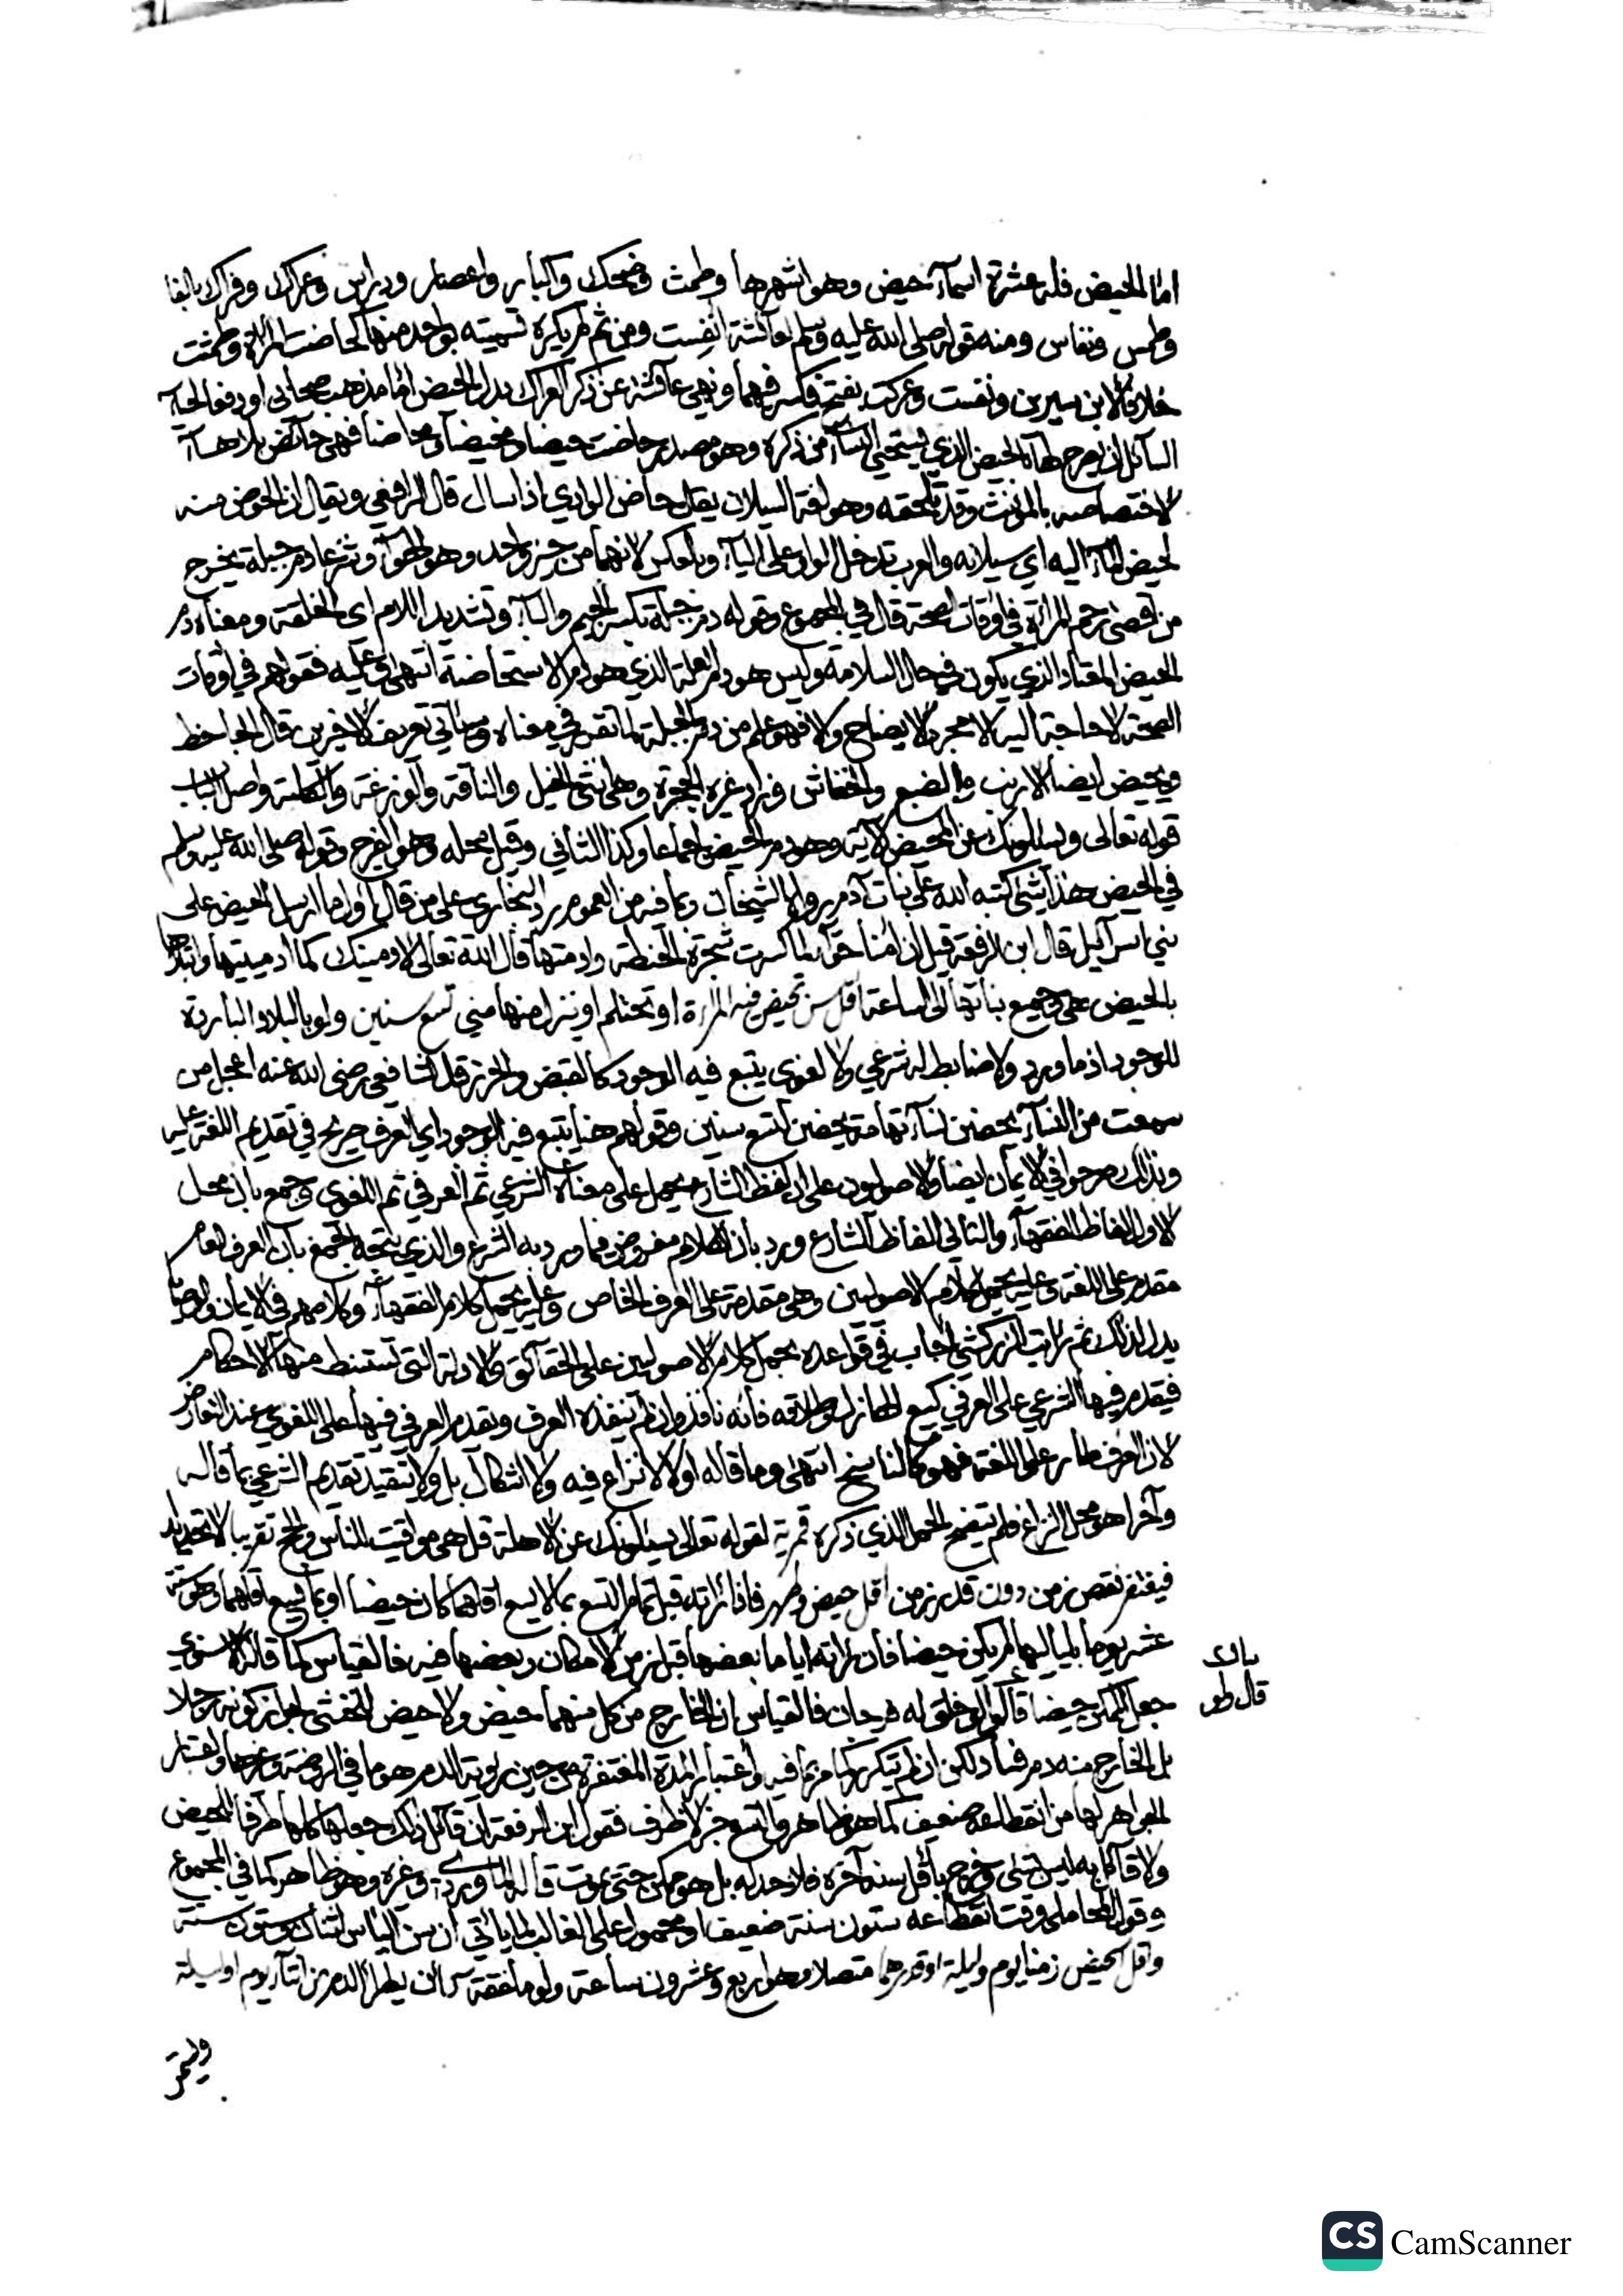 اما الحيض فله عشرة اسمآء حيض وهو اشهرها وطمث وضحك واكبار واعصار ودراس وعراك وفراك بالفا
وطمس ونفاس ومنه قوله صلى الله عليه وسلم لعائشة انفست ومن ثم لم يكره تسميته بواحد منها كحاضت المراة وطمثت
خلافا لابن سيرين ونفست وعركت بفتح فكسر فيهما ونهي عائشة عن ذكر العراك بدل الحيض اما مذهب صحابي او دفعا لحيآء
السآئل ان يصرح لها بالحيض الذي يستحيي النسآء من ذكره وهو مصدر حاضت حيضا ومحيضا ومحاضا فهي حائض بلا هآء
لاختصاصه بالمؤنث وقد تلحقه وهو لغة السيلان يقال حاض الوادي اذا سال قال الرافعي ويقال ان الحوض منه
لحيض المآء اليه اي سيلانه والعرب تدخل الواو على اليآء وبالعكس لانهما من حيز واحد وهو الهوآء وشرعا دم جبلة يخرج
من اقصى رحم المراة في اوقات الصحة قال في المجموع وقوله دم جبلة بكسر الجيم والبآء وتشديد اللام اى الخلقة ومعناه دم
الحيض المعتاد الذي يكون في حال السلامة وليس هو دم العلة الذي هو دم الاستحاضة انتهى وعليه فقولهم في اوقات
الصحة لا حاجة اليه الا لمجرد الايضاح والا فهو علم من دم الجبلة لما تقرر في معناه وسيأتي تعريف الاخيرين قال الجاحظ
ويحيض ايضا الارنب والضبع والخفاش وزاد غيره الحجرة وهي انثى الخيل والناقة والوزغة والكلبة واصل الباب
قوله تعالى ويسألونك عن المحيض الاية وهو دم الحيض اجماعا وكذا الثاني وقيل محله وهو الفرج وقوله صلى الله عليه وسلم
في الحيض هذا شئ كتبه الله على بنات آدم رواه الشيخان وبما فيه من العموم رد البخاري على من قال اول ما ارسل الحيض على
بني اسرآئيل قال ابن الرفعة قيل ان امنا حوآء لما كسرت شجرة الحنطة وادمتها قال الله تعالى لادمينك كما ادميتيها وابتلاها
بالحيض هي وجميع بناتها الى الساعة اقل سن تحيض فيه المراة او تحتلم او ينزل منها مني تسع سنين ولو بالبلاد الباردة
للوجود اذ ما ورد ولا ضابط له شرعي ولا لغوي يتبع فيه الوجود كالقبض والحرز قال الشافعي رضى الله عنه اعجل من
سمعت من النسآء يحضن نسآء تهامة يحضن لتسع سنين وقولهم هنا يتبع فيه الوجود اي العرف صريح في تقديم اللغة عليه
وبذلك صرحوا في الايمان ايضا والاصوليون على ان لفظ الشارع يحمل على معناه الشرعي ثم العرفي ثم اللغوي وجمع بان محل
الاول الفاظ الفقهآء والثاني الفاظ الشارع ورد بان الكلام مفروض فيما ورد به الشرع والذي يتجه الجمع بان العرف العام
مقدم على اللغة وعليه يحمل كلام الاصوليين وهي مقدمة على العرف الخاص وعليه يحمل كلام الفقهآء وكلامهم في الايمان والوصايا
يدل لذلك ثم رايت الزركشي اجاب في قواعده بحمل كلام الاصوليين على الحقآئق والادلة التي تستنبط منها الاحكام
فيقدم فيها الشرعي على العرفي كبيع الهازل وطلاقه فانه نافذ وان لم ينفذه العرف ويقدم العرفي فيها على اللغوي عند التعارض
لان العرف طار على اللغة فهو كالناسخ انتهى وما قاله اولا لا نزاع فيه ولا اشكال بل ولا يتقيد تقديم الشرعي بما قاله
وآخرا هو محل النزاع فلم يتضح الحمل الذي ذكره قمرية لقوله تعالى يسئلونك عن الاهلة قل هي مواقيت للناس والحج تقريبا لا تحديدا
فيغتفر نقص زمن دون قدر زمن اقل حيض وطهر فاذا راته قبل تمام التسع بما لا يسع اقلهما كان حيضا او بما يسع اقلهما وهو ستة
عشر يوما بلياليها لم يكن حيضا فان راته اياما بعضها قبل زمن الامكان وبعضها فيه فالقياس كما قاله الاسنوي
جعل الممكن حيضا قال ولو خلق له فرجان فالقياس ان الخارج من كل منهما حيض ولا حيض للخنثى لجواز كونه رجلا
بل الخارج منه دم فساد لكن ان لم يتكرر كما مر بما فيه واعتبار المدة المغتفرة من حين رؤية الدم هو ما في الروضة وغيرها واعتبار
الجواهر لها من انقطاعه ضعيف كما هو ظاهر والتسع خبر لا ظرف فقول ابن الرفعة ان قائل ذلك جعلها كلها ظرفا للحيض
ولا قآئل به ليس بشئ وخرج باقل سنه آخره فلا حد له بل هو ممكن حتى تموت قاله الماوردي وغيره وهو ظاهر كما في المجموع
وقول المحاملي وقت انقطاعه ستون سنة ضعيف او محمول على الغالب لما ياتي ان سن الياس اثنان وستون سنة
واقل الحيض زمنا يوم وليلة او قدرهما متصلا وهو اربع وعشرون ساعة ولو ملفقة كان يطرأ الدم من اثنآء يوم او ليلة
قال ولو